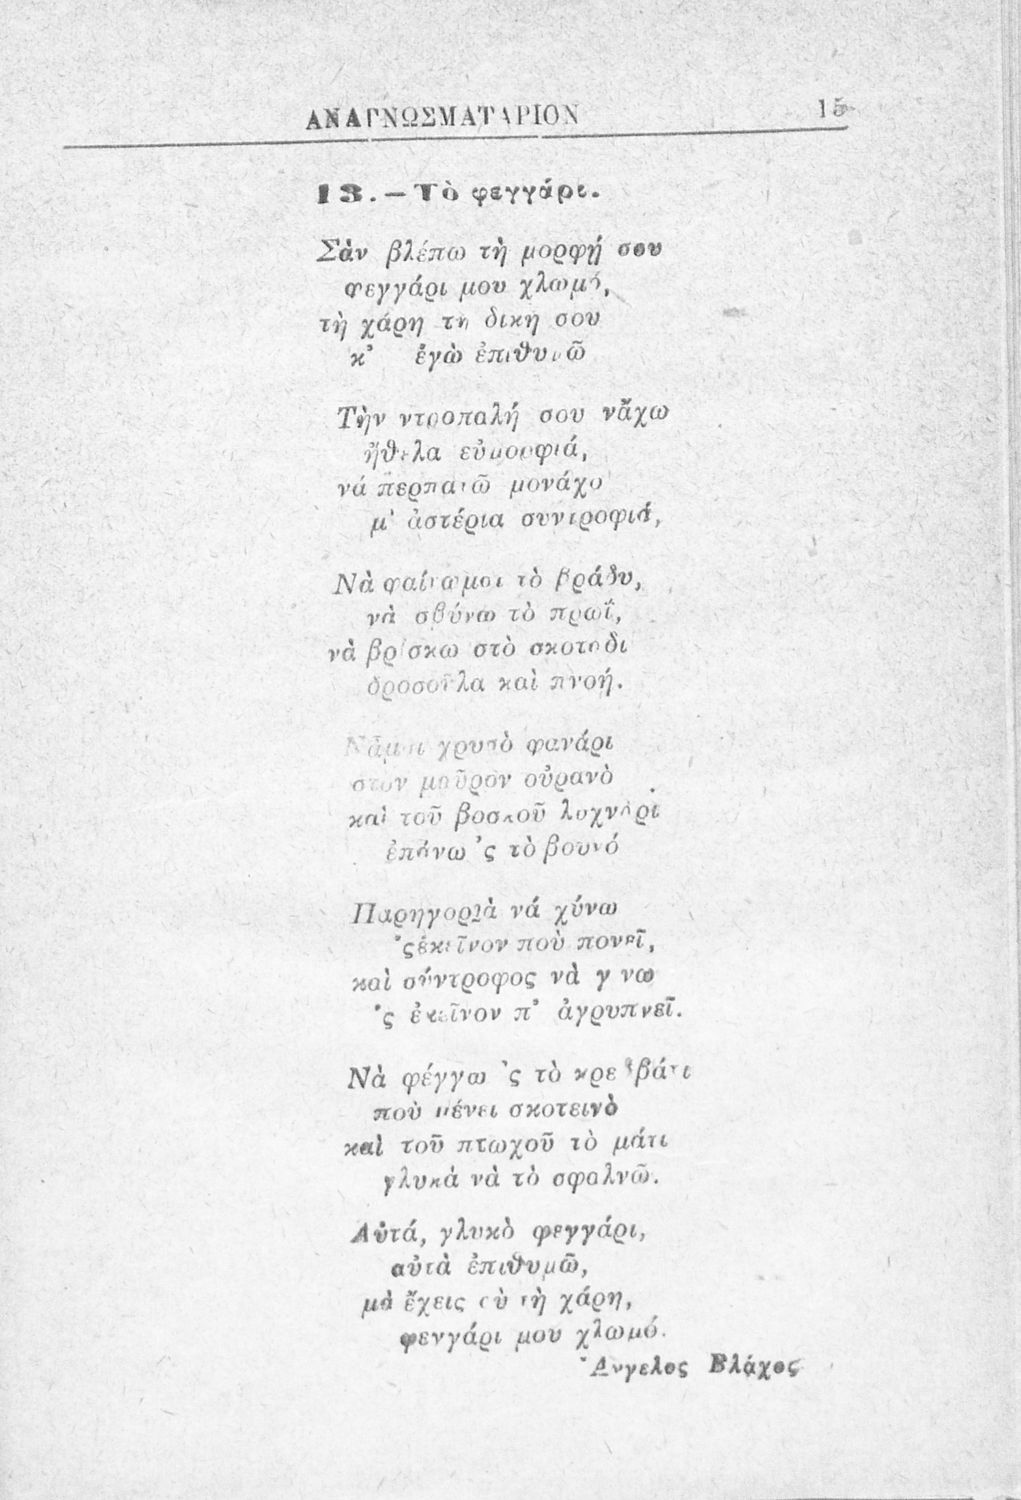 ΑΝΑΓΝΩΣΜΑΤΑΡΙΟΝ 15
13. — Τὸ φεγγάρι.
Σὰν βλέπω τὴ μορφή σου
φεγγάρι μου χλωμό,
τὴ χάρη τὴ δικὴ σου
κ' ἐγὼ ἐπιθυμῶ
Τὴν ντροπαλή σου νἄχω
ἤθελα εὐμορφιά,
νά περπατῶ μονάχο
μ' ἀστέρια συντροφιά,
Νὰ φαίνωμαι τὸ βράδυ,
νὰ σβύνω τὸ πρωΐ,
νὰ βρίσκω στὸ σκοτάδι
δροσοῦλα καὶ πνοή.
Νἄμαι χρυσὸ φανάρι
στὸν μαῦρον οὐρανὸ
καὶ τοῦ βοσκοῦ λυχνάρι
ἐπάνω 'ς τὸ βουνό
Παρηγοριὰ νά χύνω
'ςἐκεῖνον ποὺ πονεῖ,
καὶ σύντροφος νὰ γίνω
'ς ἐκεῖνον π' ἀγρυπνεῖ.
Νὰ φέγγω 'ς τὸ κρεββάτι
ποὺ μένει σκοτεινὸ
καὶ τοῦ πτωχοῦ τὸ μάτι
γλυκά νὰ τὸ σφαλνῶ.
Αὐτά, γλυκὸ φεγγάρι,
αὐτὰ ἐπιθυμῶ,
μὰ ἔχεις σὺ τὴ χάρη,
φενγάρι μου χλωμό.
Ἄνγελος Βλάχος